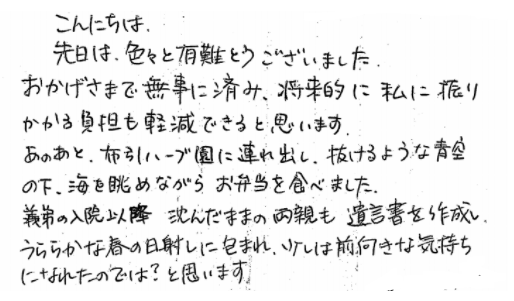 こんにちは.
先日は、色々と有難とうございました.
おかげさまで無事に済み、将来的に私に振り
かかる負担も軽減できると思います.
あのあと、布引ハーブ園に連れ出し、抜けるような青空
の下、海を眺めながらお弁当を食べました.
義弟の入院以降 沈んだままの両親も 遺言書を作成し、
うららかな春の日射しに包まれ、少しは前向きな気持ち
になれたのでは？と思います.